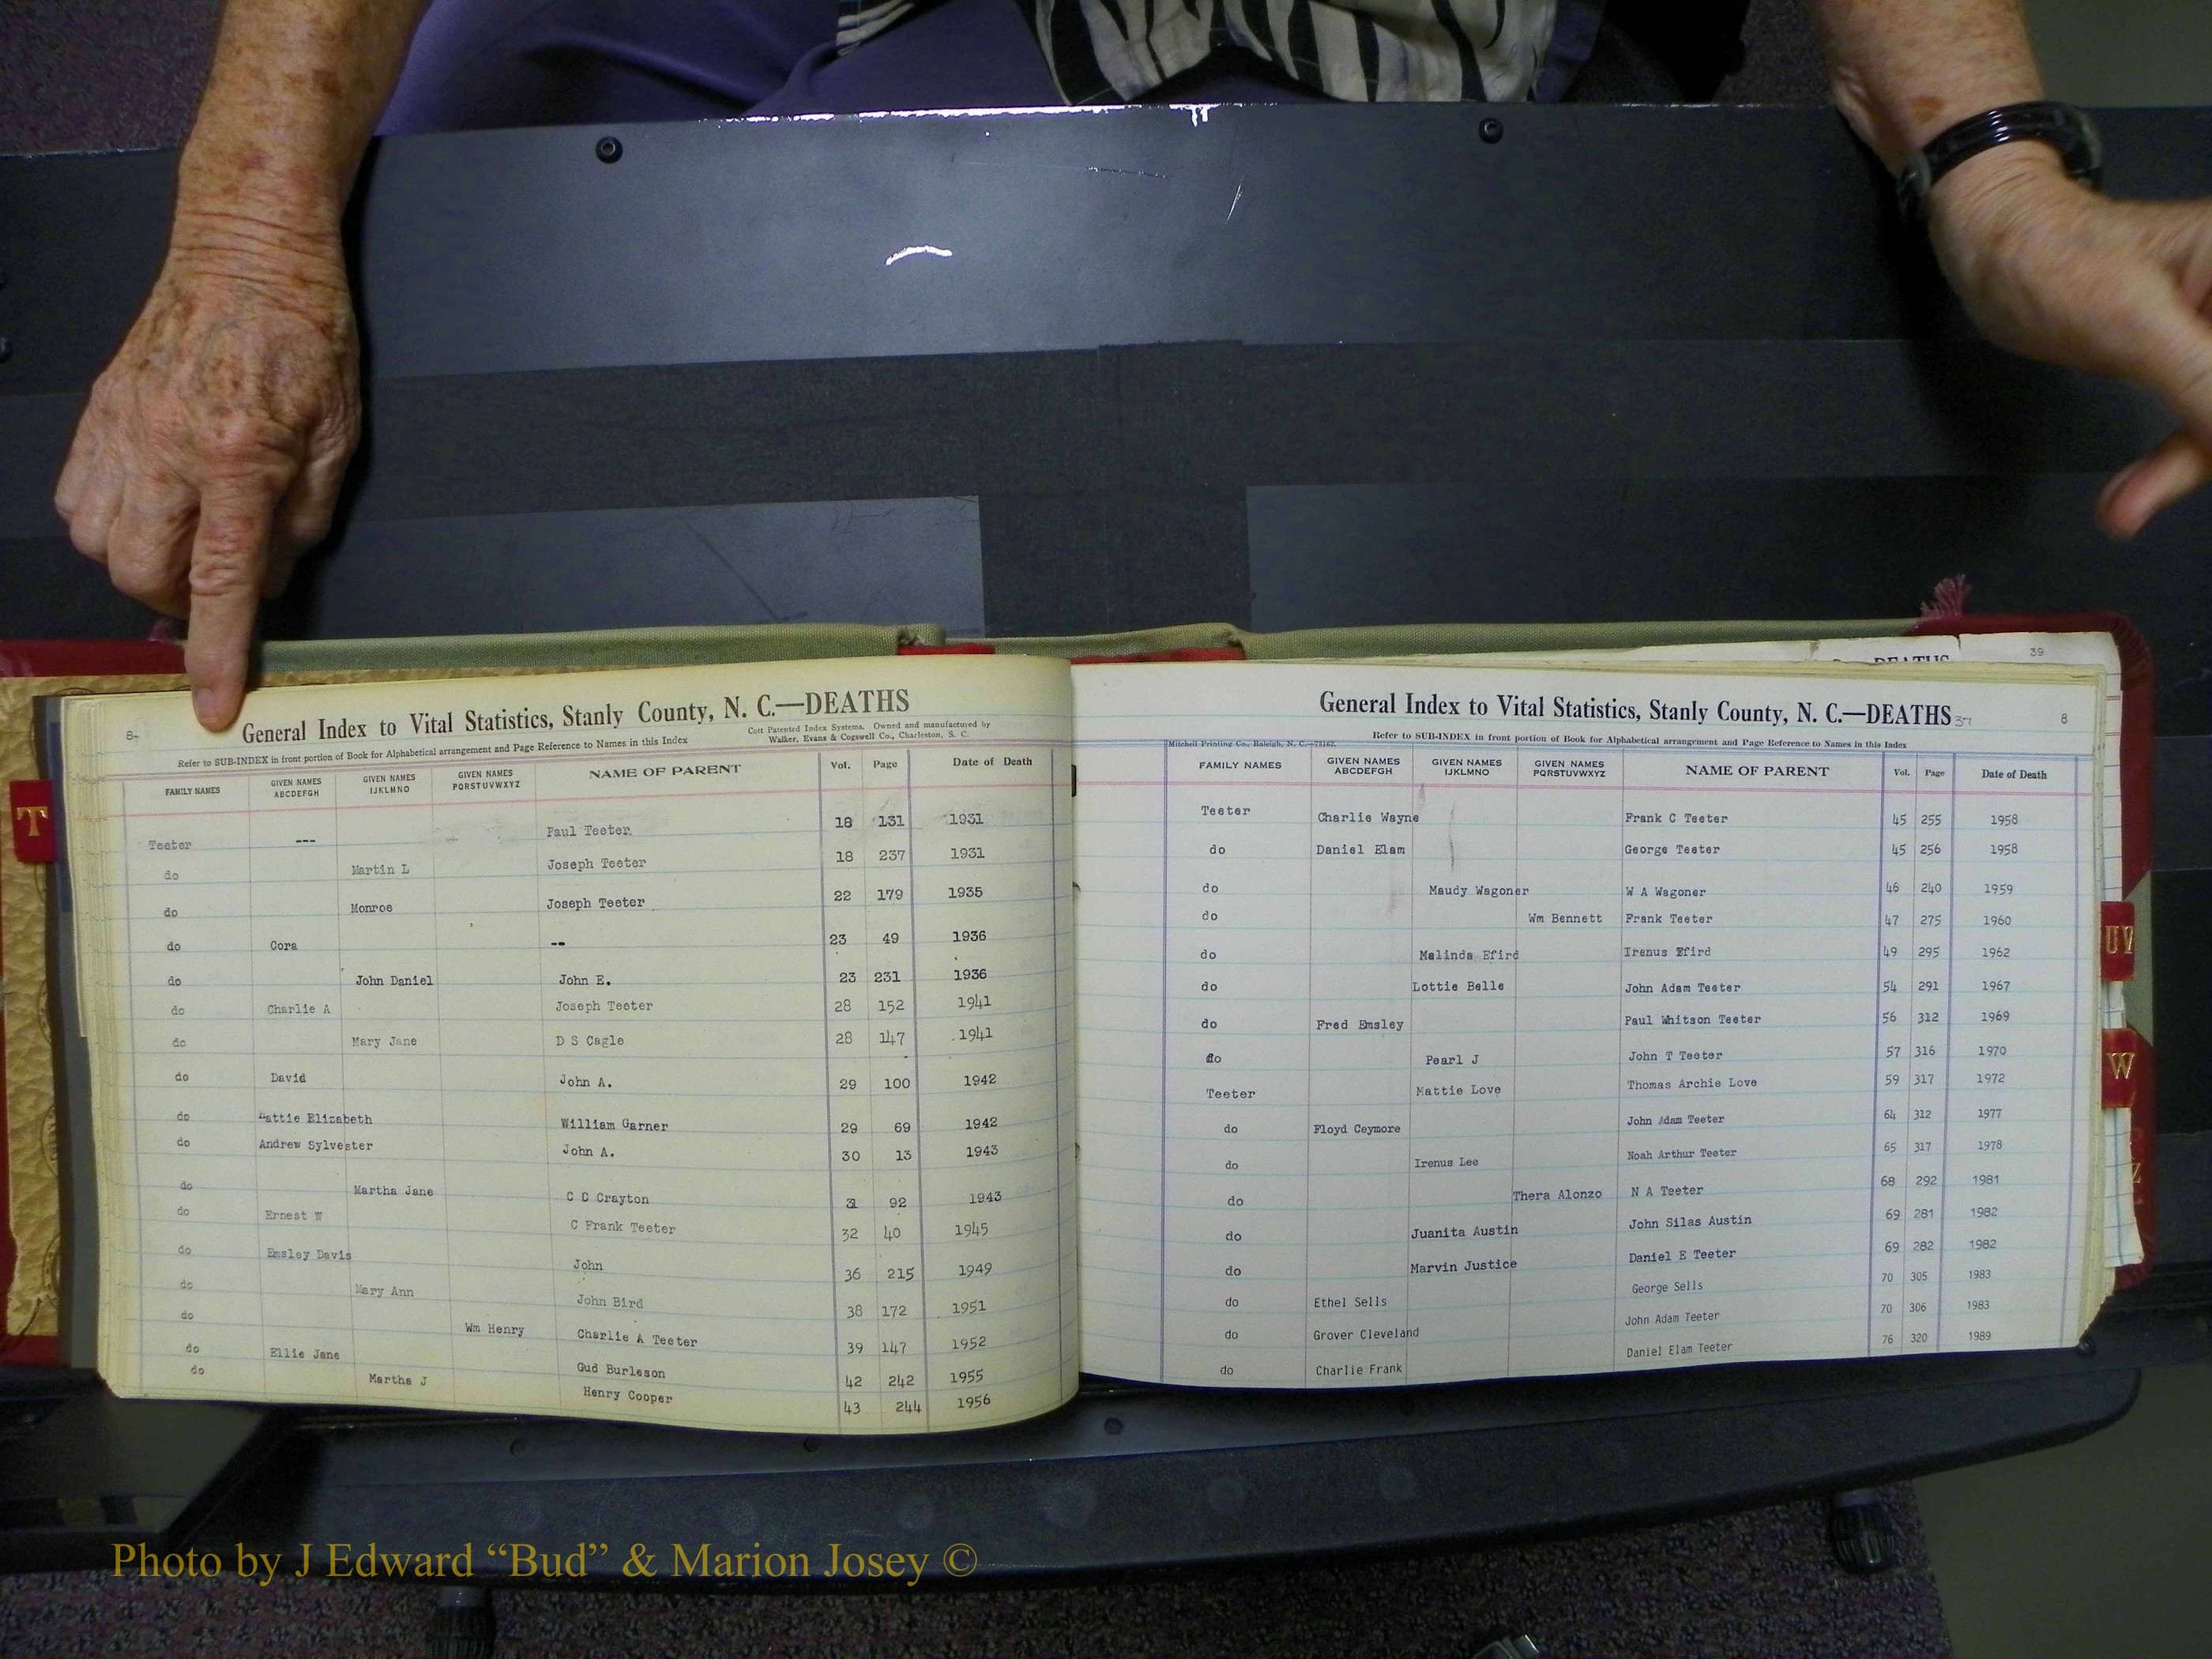 39
8-
General Index to Vital Statistics, Stanly County, N. C.—DEATHS
Refer to SUB-INDEX in front portion of Book for Alphabetical arrangement and Page Reference to Names in this Index
Cott Patented Index Systems. Owned and manufactured by
Walker, Evans & Cogswell Co., Charleston, S. C.
FAMILY NAMES GIVEN NAMES ABCDEFGH GIVEN NAMES IJKLMNO GIVEN NAMES PQRSTUVWXYZ NAME OF PARENT Vol. Page Date of Death
Teeter --- Paul Teeter 18 131 1931
do Martin L Joseph Teeter 18 237 1931
do Monroe Joseph Teeter 22 179 1935
do Cora -- 23 49 1936
do John Daniel John E. 23 231 1936
do Charlie A Joseph Teeter 28 152 1941
do Mary Jane D S Cagle 28 147 1941
do David John A. 29 100 1942
do Elizabeth William Garner 29 69 1942
do Andrew Sylvester John A. 30 13 1943
do Martha Jane C D Crayton 92 1943
do Ernest W C Frank Teeter 32 40 1945
do Emsley Davis John 36 215 1949
do Mary Ann John Bird 38 172 1951
do Wm Henry Charlie A Teeter 39 147 1952
do Ellie Jane Gud Burleson 42 242 1955
do Martha J Henry Cooper 43 244 1956
General Index to Vital Statistics, Stanly County, N. C.—DEATHS 37 8
Refer to SUB-INDEX in front portion of Book for Alphabetical arrangement and Page Reference to Names in this Index
Mitchell Printing Co., Raleigh, N. C.—73162.
FAMILY NAMES GIVEN NAMES ABCDEFGH GIVEN NAMES IJKLMNO GIVEN NAMES PQRSTUVWXYZ NAME OF PARENT Vol. Page Date of Death
Teeter Charlie Wayne Frank C Teeter 45 255 1958
do Daniel Elam George Teeter 45 256 1958
do Maudy Wagoner W A Wagoner 46 240 1959
do Wm Bennett Frank Teeter 47 275 1960
do Malinda Efird Irenus Efird 49 295 1962
do Lottie Belle John Adam Teeter 54 291 1967
do Fred Emsley Paul Whitson Teeter 56 312 1969
do Pearl J John T Teeter 57 316 1970
Teeter Mattie Love Thomas Archie Love 59 317 1972
do Floyd Ceymore John Adam Teeter 64 312 1977
do Irenus Lee Noah Arthur Teeter 65 317 1978
do Thera Alonzo N A Teeter 68 292 1981
do Juanita Austin John Silas Austin 69 281 1982
do Marvin Justice Daniel E Teeter 69 282 1982
do Ethel Sells George Sells 70 305 1983
do Grover Cleveland John Adam Teeter 70 306 1983
do Charlie Frank Daniel Elam Teeter 76 320 1989
T
UV
W
Z
Photo by J Edward “Bud” & Marion Josey ©